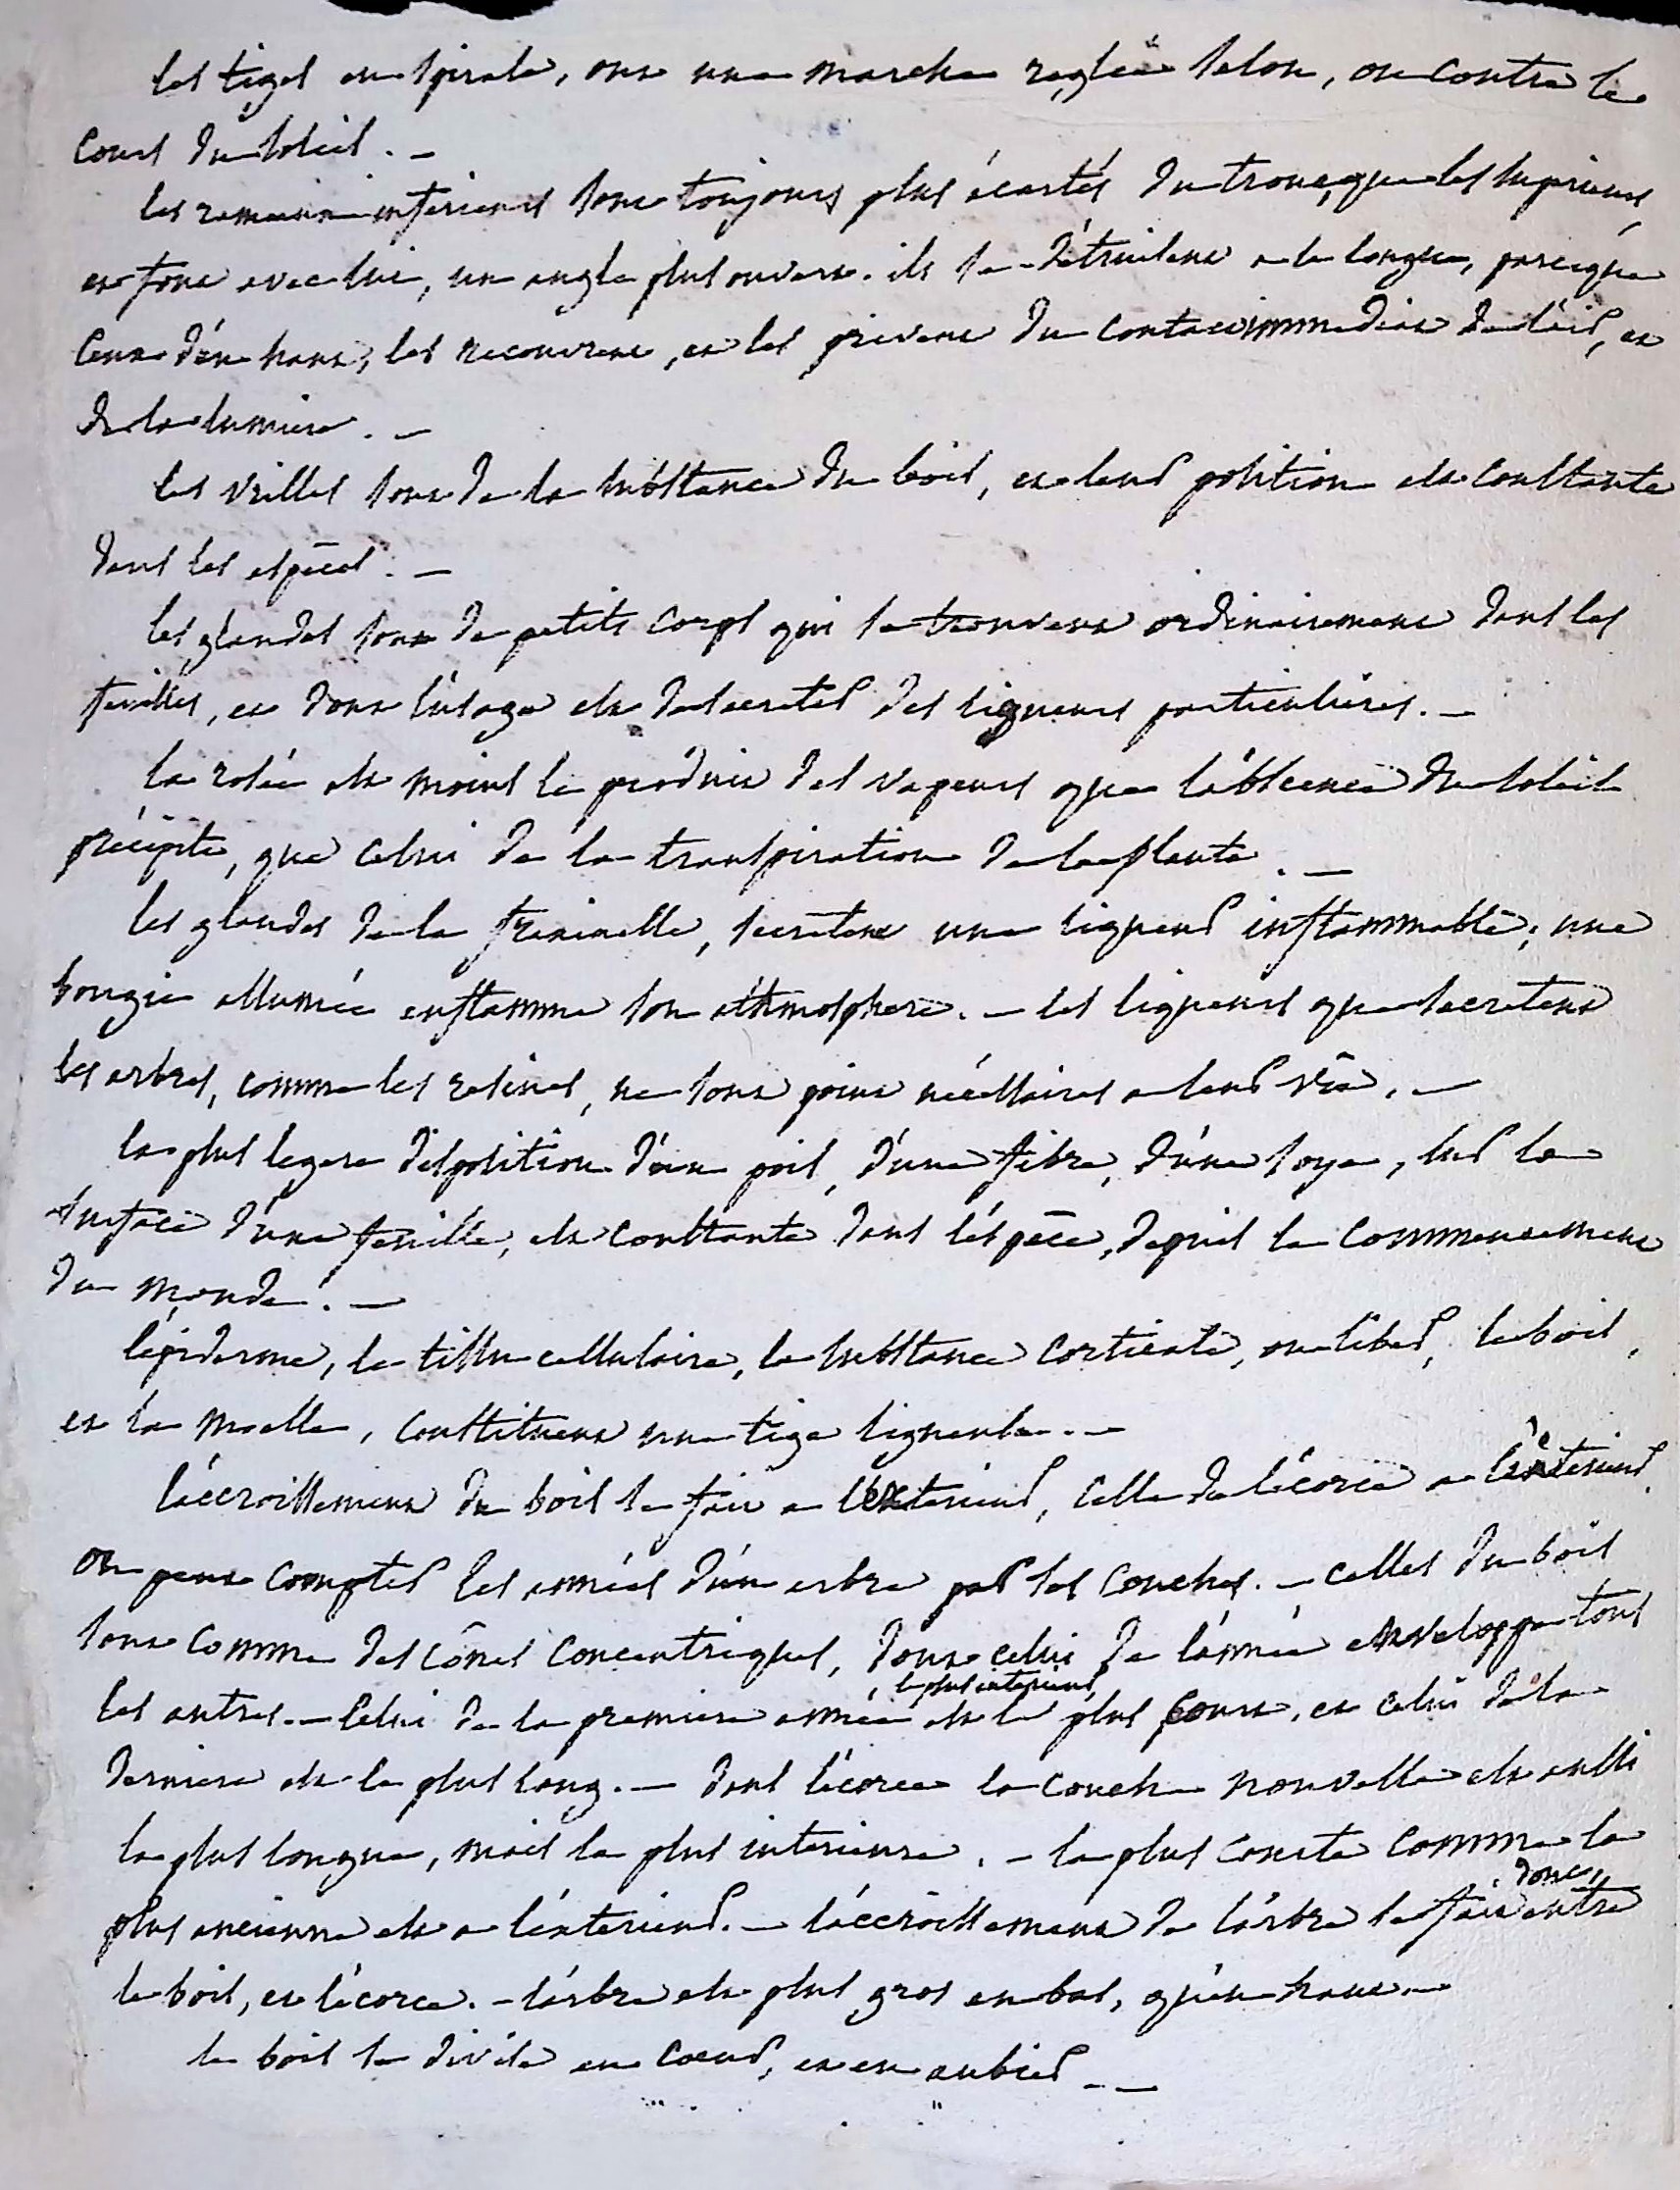 les tiges en spirale, ont une marche reglée selon, ou contre le
cours du soleil. –
les rameaux inferieurs sont toujours plus écartés du tronc, que les superieurs,
et font avec lui, un angle plus ouvert. ils se détruisent a la longue, parceque
ceux d'én haut, les recouvrent, et les privent du contact immediat de l'air, et
de la lumiere. –
les vrilles sont de la substance du bois, et leur position est constante
dans les espèces. –
les glandes sont de petits corps qui se trouvent ordinairement dans les
feuilles, et dont l'usage est de secreter des liqueurs particulières. –
la rosée est moins le produit des vapeurs que l'absence du soleil
précipite, que celui de la transpiration de la plante. –
les glandes de la fraxinelle, secretent une liqueur inflammable; une
bougie allumée enflamme son athmosphere. – les liqueurs que secretent
les arbres, comme les resines, ne sont point nécessaires a leur vie. –
la plus legere disposition d'un poil, d'une fibre, d'une soye, sur la
surface d'une feuille, est constante dans l'éspèce, depuis le commencement
du monde. –
l'épiderme, le tissu cellulaire, la substance corticale, ou liber, le bois,
et la moelle, constituent une tige ligneuse. –
l'áccroissement du bois se fait a l'exterieur, celle de l'écorce a l'interieur.
on peut compter les années d'un arbre par ses couches. – celles du bois
sont comme des cônes concentriques, dont celui de l'année enveloppe tous
les autres. – Celui de la premiere année, le plus interieur, est le plus court, et celui de la
derniere est le plus long. – dans l'écorce la couche nouvelle est aussi
la plus longue, mais la plus interieure. – la plus courte comme la
plus ancienne est a l'éxterieur. – l'áccroissement de l'arbre se fait donc, entre
le bois, et l'écorce. – l'arbre est plus gros en bas, qu'en haut. –
le bois se divise en coeur, et en aubier. –